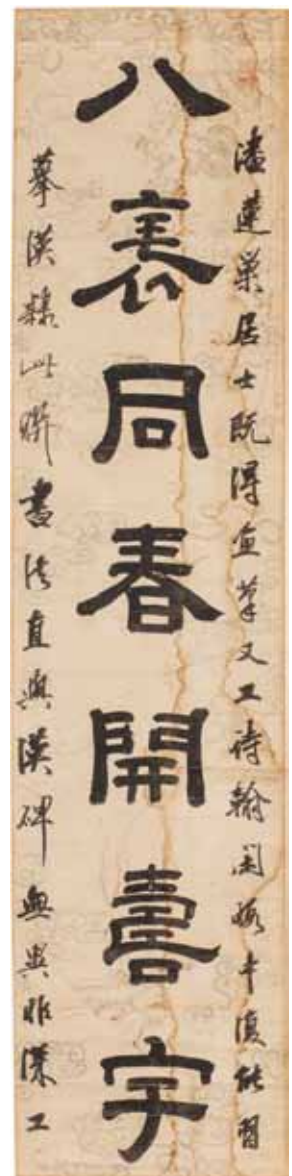 潘蓮巢居士既得画筆又工詩翰閑暇中復能習
八表同春開壽宇
摹漢隸此聯書法直與漢碑無異非深工